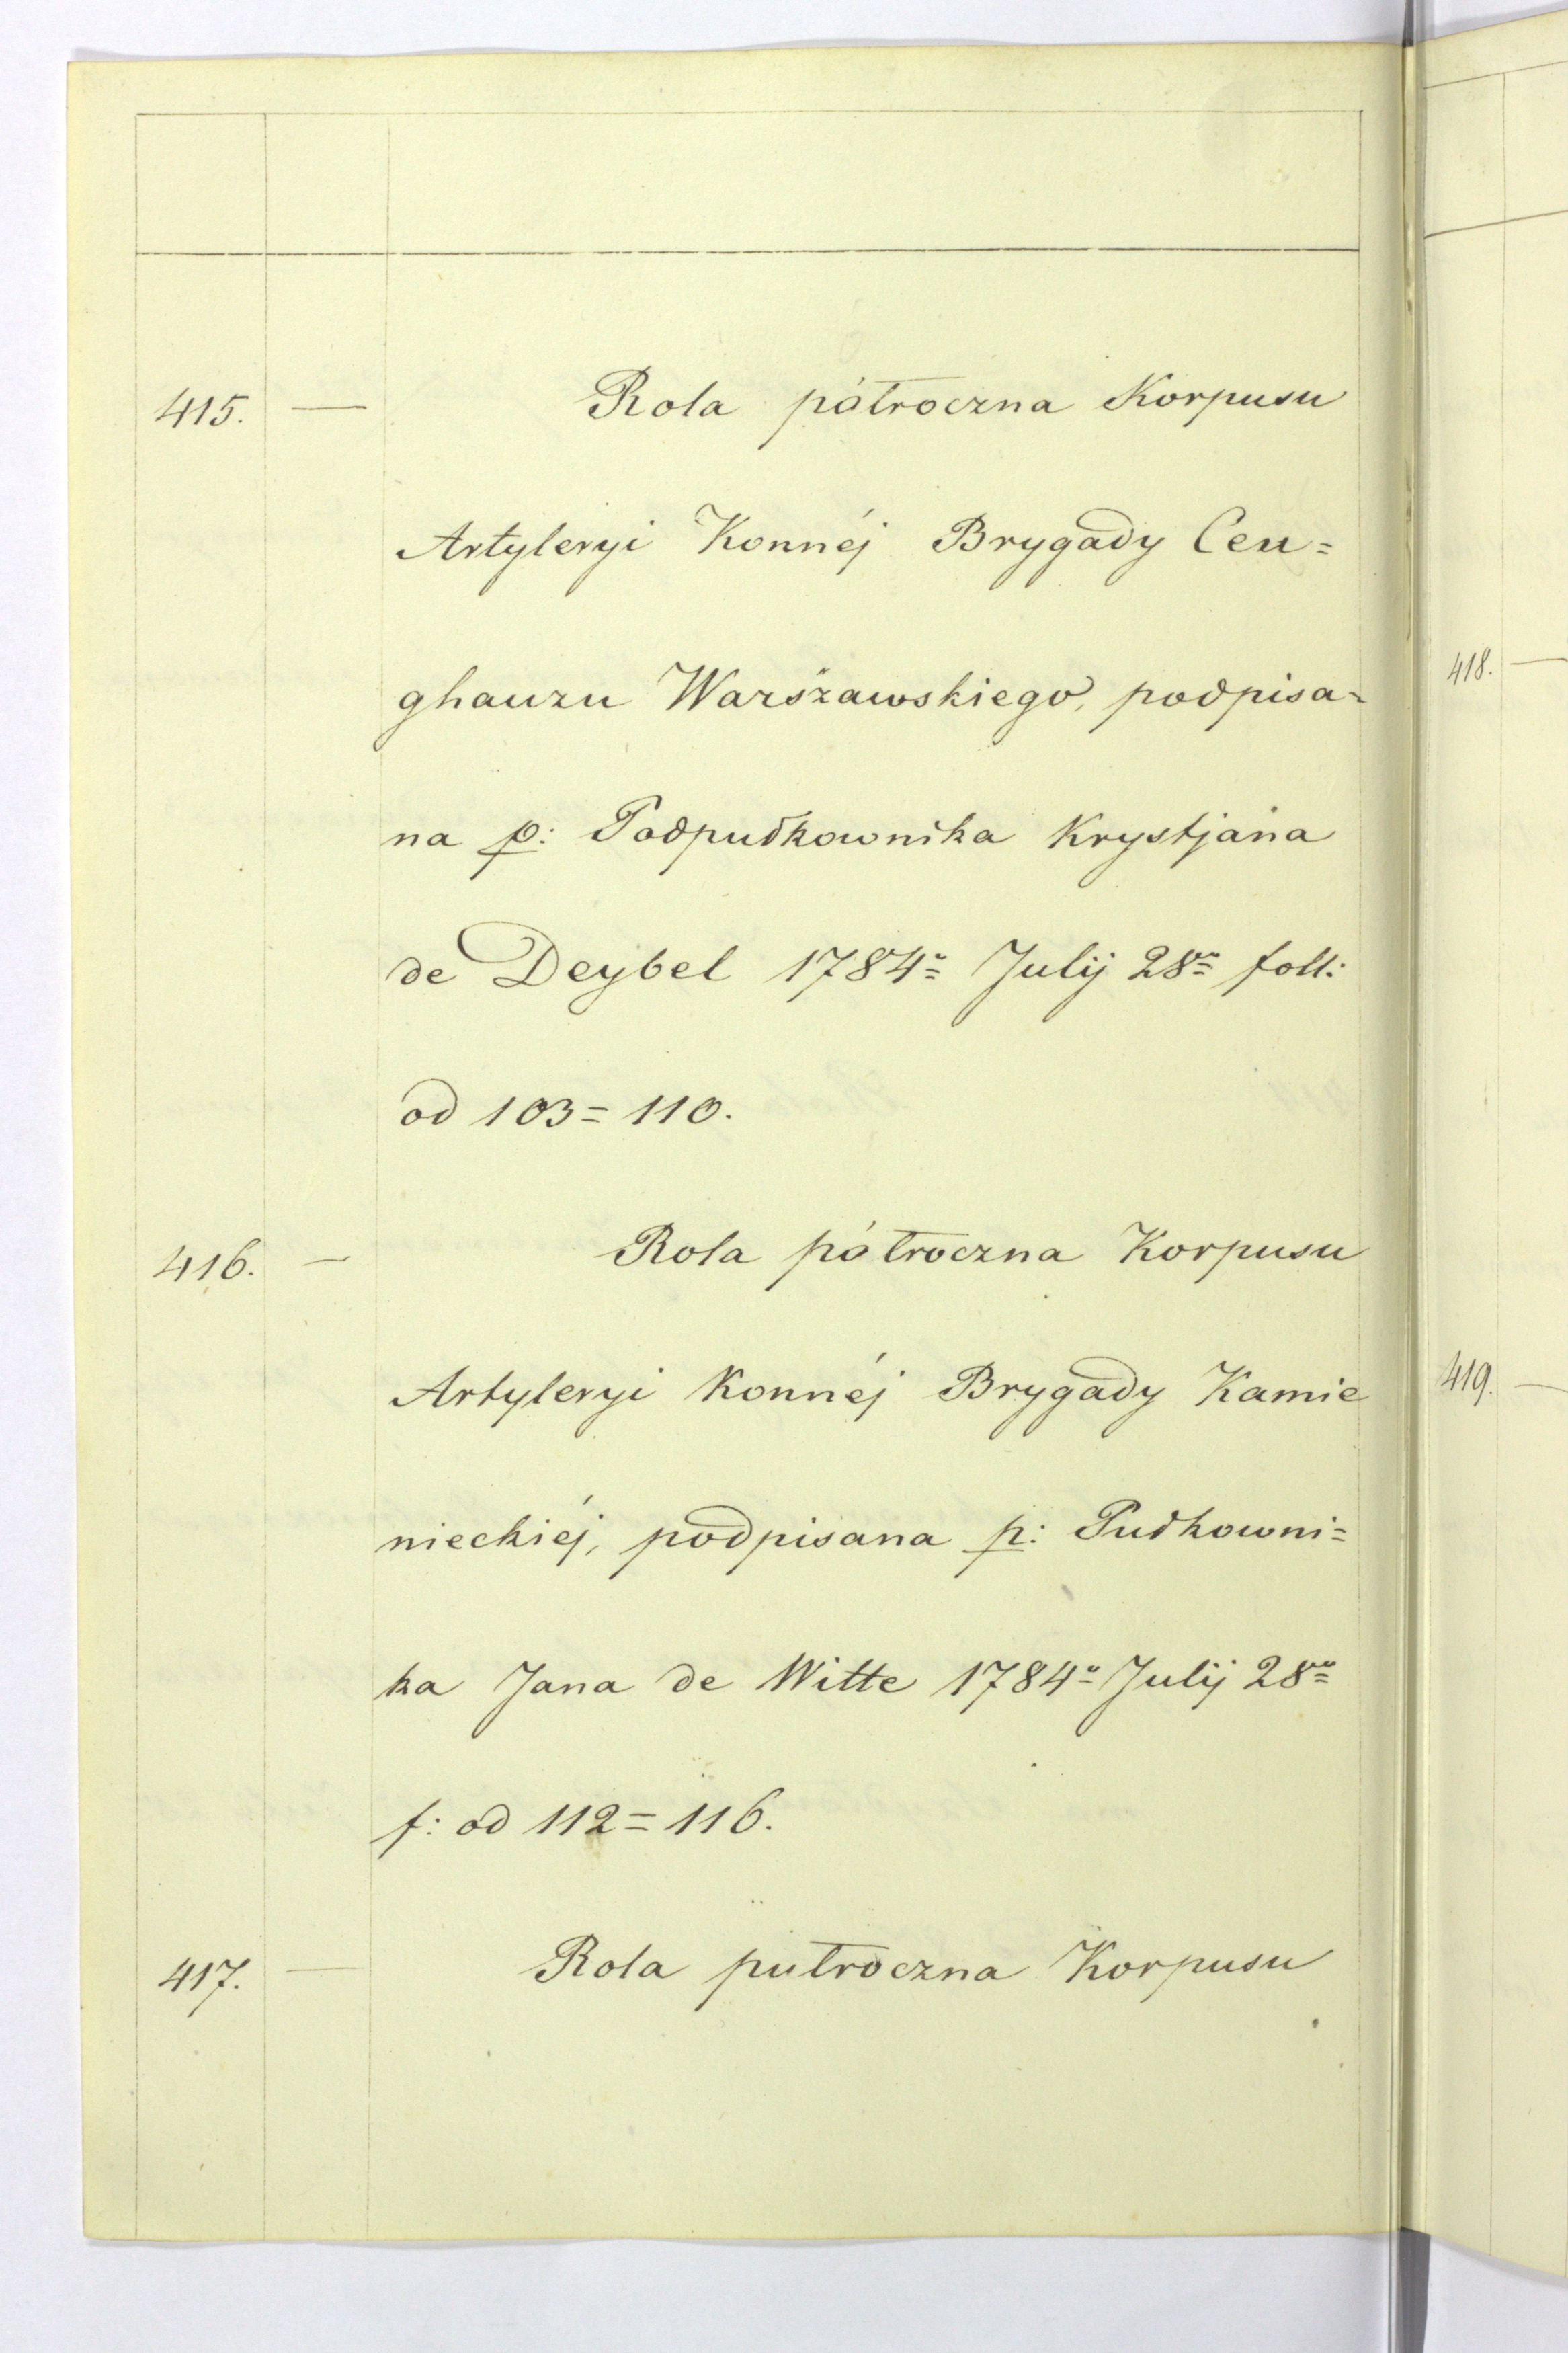 415. — Rola półroczna Korpusu
Artyleryi Konnéj Brygady Ceu=
ghauzu Warszawskiego, podpisa=
na p: Podpułkownika Krystjana
de Deybel 1784º Julij 28ª foll:
od 103=110.
416. — Rola półroczna Korpusu
Artyleryi Konnéj Brygady Kamie
nieckiéj, podpisana p: Pułkowni=
ka Jana de Witte 1784º Julij 28ª
f: od 112=116.
417. — Rola pułroczna Korpusu
418. —
419. —